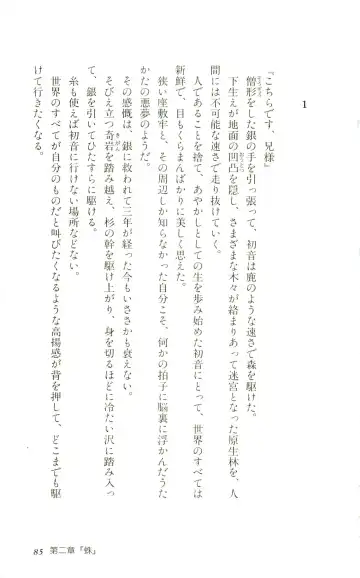 1
『こちらです、兄様』
僧形をした銀の手を引っ張って、初音は鹿のような速さで森を駆けた。
下生えが地面の凹凸を隠し、さまざまな木々が絡まりあって迷宮となった原生林を、人
間には不可能な速さで走り抜けていく。
人であることを捨て、あやかしとしての生を歩み始めた初音にとって、世界のすべては
新鮮で、目もくらまんばかりに美しく思えた。
狭い座敷牢と、その周辺しか知らなかった自分こそ、何かの拍子に脳裏に浮かんだうた
かたの悪夢のようだ。
その感慨は、銀に救われて三年が経った今もいささかも衰えない。
そびえ立つ奇岩を踏み越え、杉の幹を駆け上がり、身を切るほどに冷たい沢に踏み入っ
て、銀を引いてひたすらに駆ける。
糸も使えば初音に行けない場所などない。
世界のすべてが自分のものだと叫びたくなるような高揚感が背を押して、どこまでも駆
けて行きたくなる。
85 第二章「蛛」